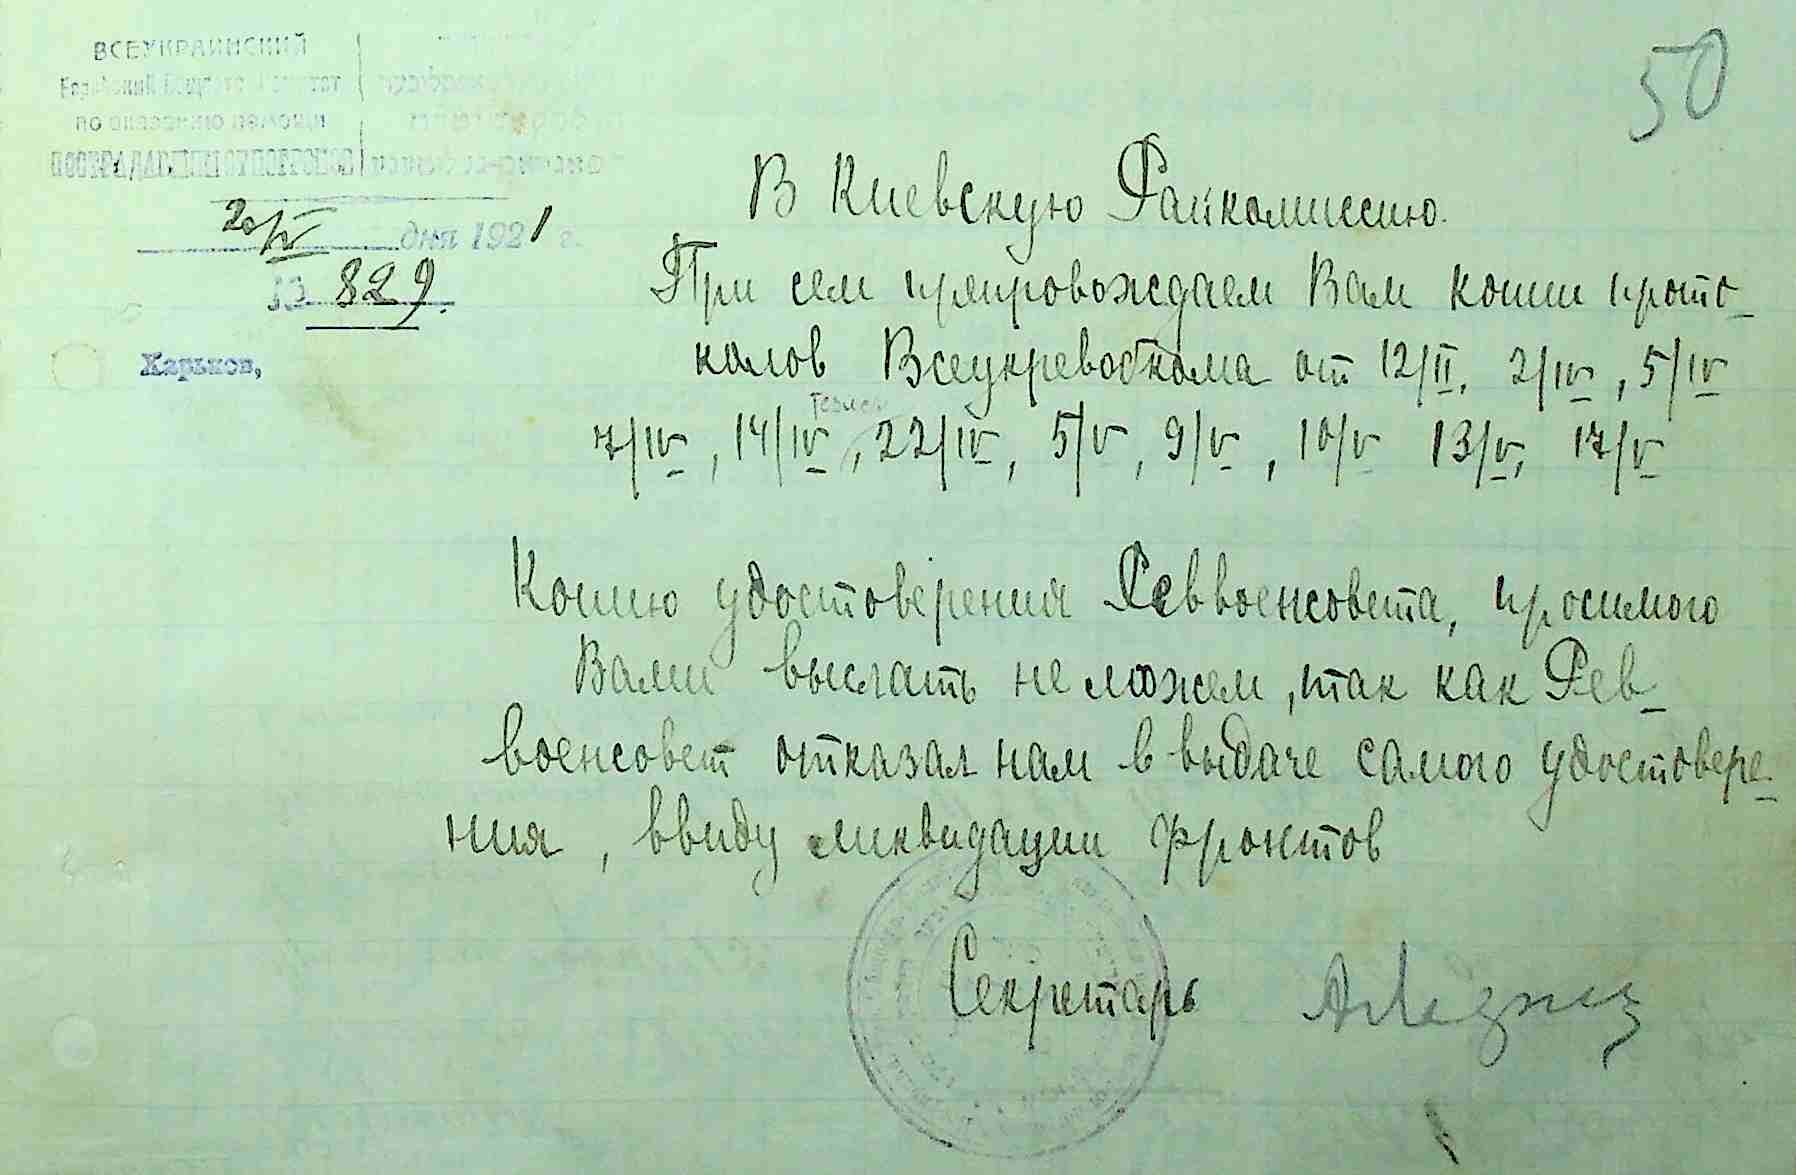 50
ВСЕУКРАИНСКИЙ
Еврейский Общест. Комитет
по оказанию помощи
ПОСТРАДАВШИМ ОТ ПОГРОМОВ
20/V дня 1921 г.
№ 829.
Харьков,
В Киевскую Райкомиссию.
При сем препровождаем Вам копии прото-
колов Всеукревобкома от 12/II, 2/IV, 5/IV
7/IV, 14/IV, 22/IV, 5/V, 9/V, 10/V 13/V, 17/V
Копию удостоверения Реввоенсовета, просимого
Вами выслать не можем, так как Рев-
военсовет отказал нам в выдаче самого удостовере-
ния, ввиду ликвидации фронтов
Секретарь